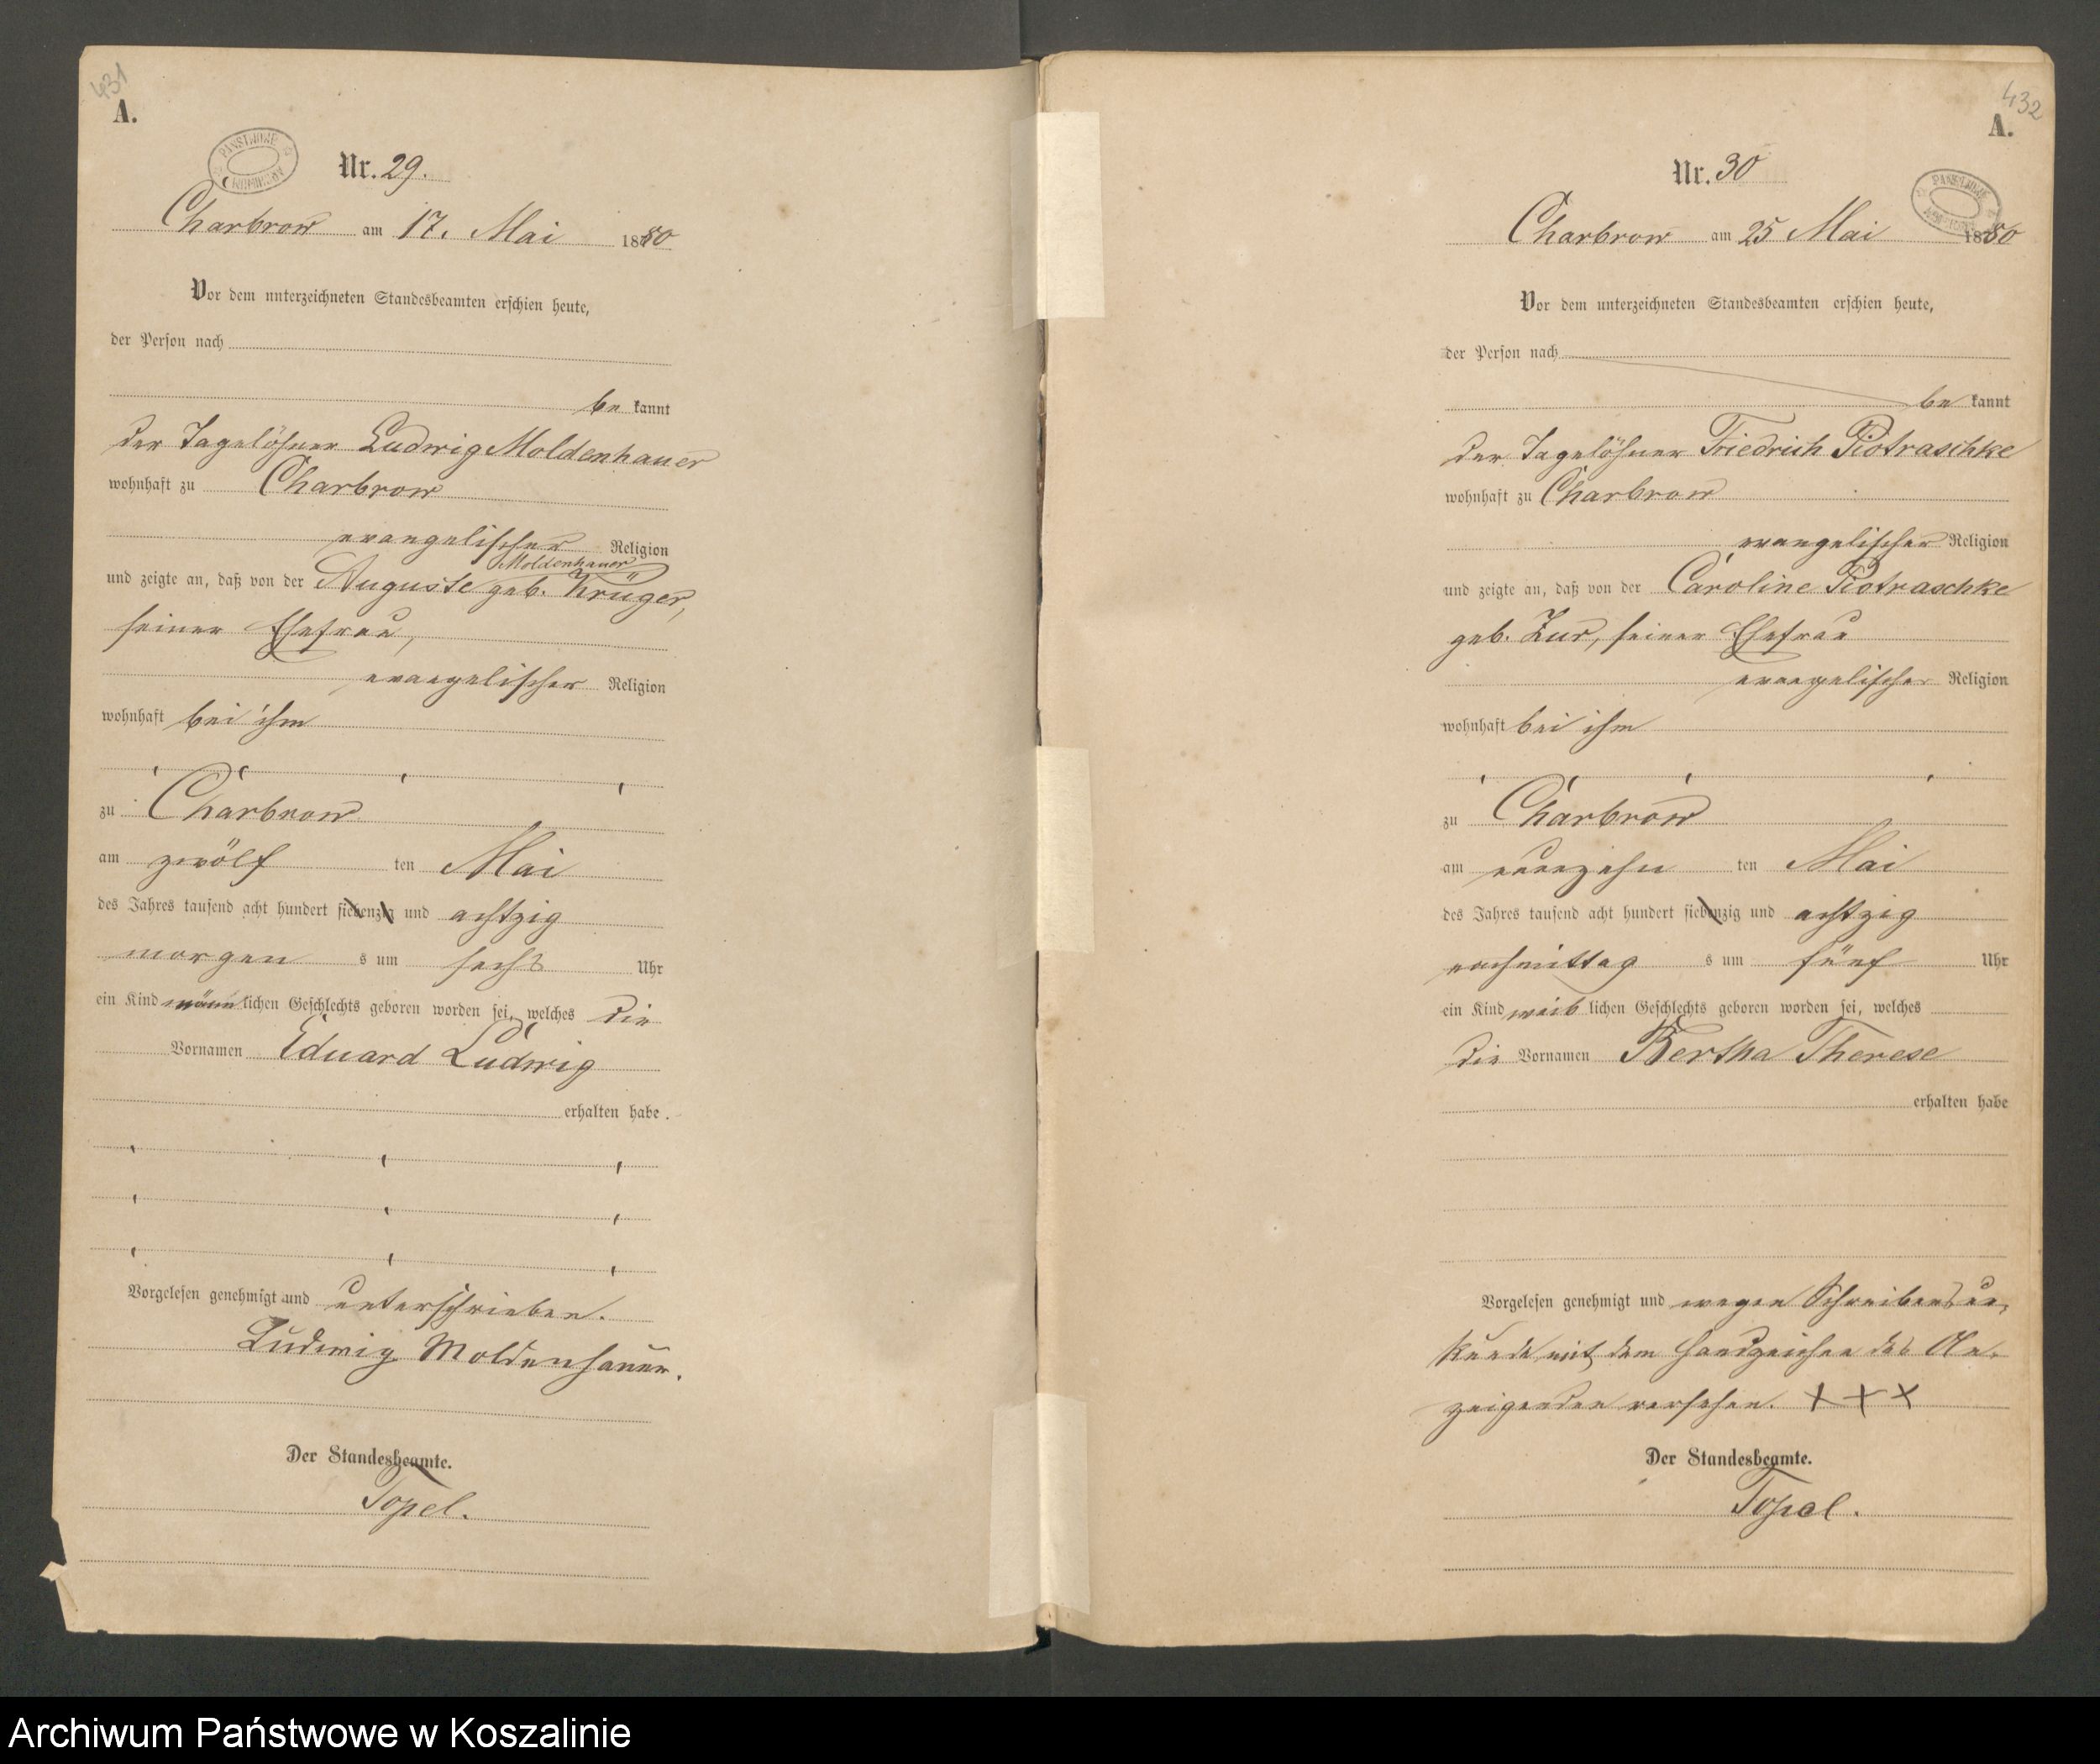 431
A.
PAŃSTWOWE ARCHIWUM
Nr. 29.
Charbrow am 17. Mai 1880
Vor dem unterzeichneten Standesbeamten erschien heute,
der Person nach
be kannt
der Tagelöhner Ludwig Moldenhauer
wohnhaft zu Charbrow
evangelischer Religion
Moldenhauer
und zeigte an, daß von der Auguste geb. Krüger,
seiner Ehefrau,
evangelischer Religion
wohnhaft bei ihm
zu Charbrow
am zwölf ten Mai
des Jahres tausend acht hundert siebenzig und achtzig
morgen s um sechs Uhr
ein Kind männlichen Geschlechts geboren worden sei, welches die
Vornamen Eduard Ludwig
erhalten habe.
Vorgelesen genehmigt und unterschrieben.
Ludwig Moldenhauer.
Der Standesbeamte.
Topel.
432
A.
PAŃSTWOWE
Nr. 30
Charbrow am 25 Mai 1880
Vor dem unterzeichneten Standesbeamten erschien heute,
der Person nach
be kannt
der Tagelöhner Friedrich Piotraschke
wohnhaft zu Charbrow
evangelischer Religion
und zeigte an, daß von der Caroline Piotraschke
geb. Zur, seiner Ehefrau
evangelischer Religion
wohnhaft bei ihm
zu Charbrow
am neunzehn ten Mai
des Jahres tausend acht hundert siebenzig und achtzig
nachmittag s um fünf Uhr
ein Kind weib lichen Geschlechts geboren worden sei, welches
die Vornamen Bertha Therese
erhalten habe
Vorgelesen genehmigt und wegen Schreibensun-
kunde mit dem Handzeichen des An-
zeigenden versehen. XXX
Der Standesbeamte.
Topel.
Archiwum Państwowe w Koszalinie